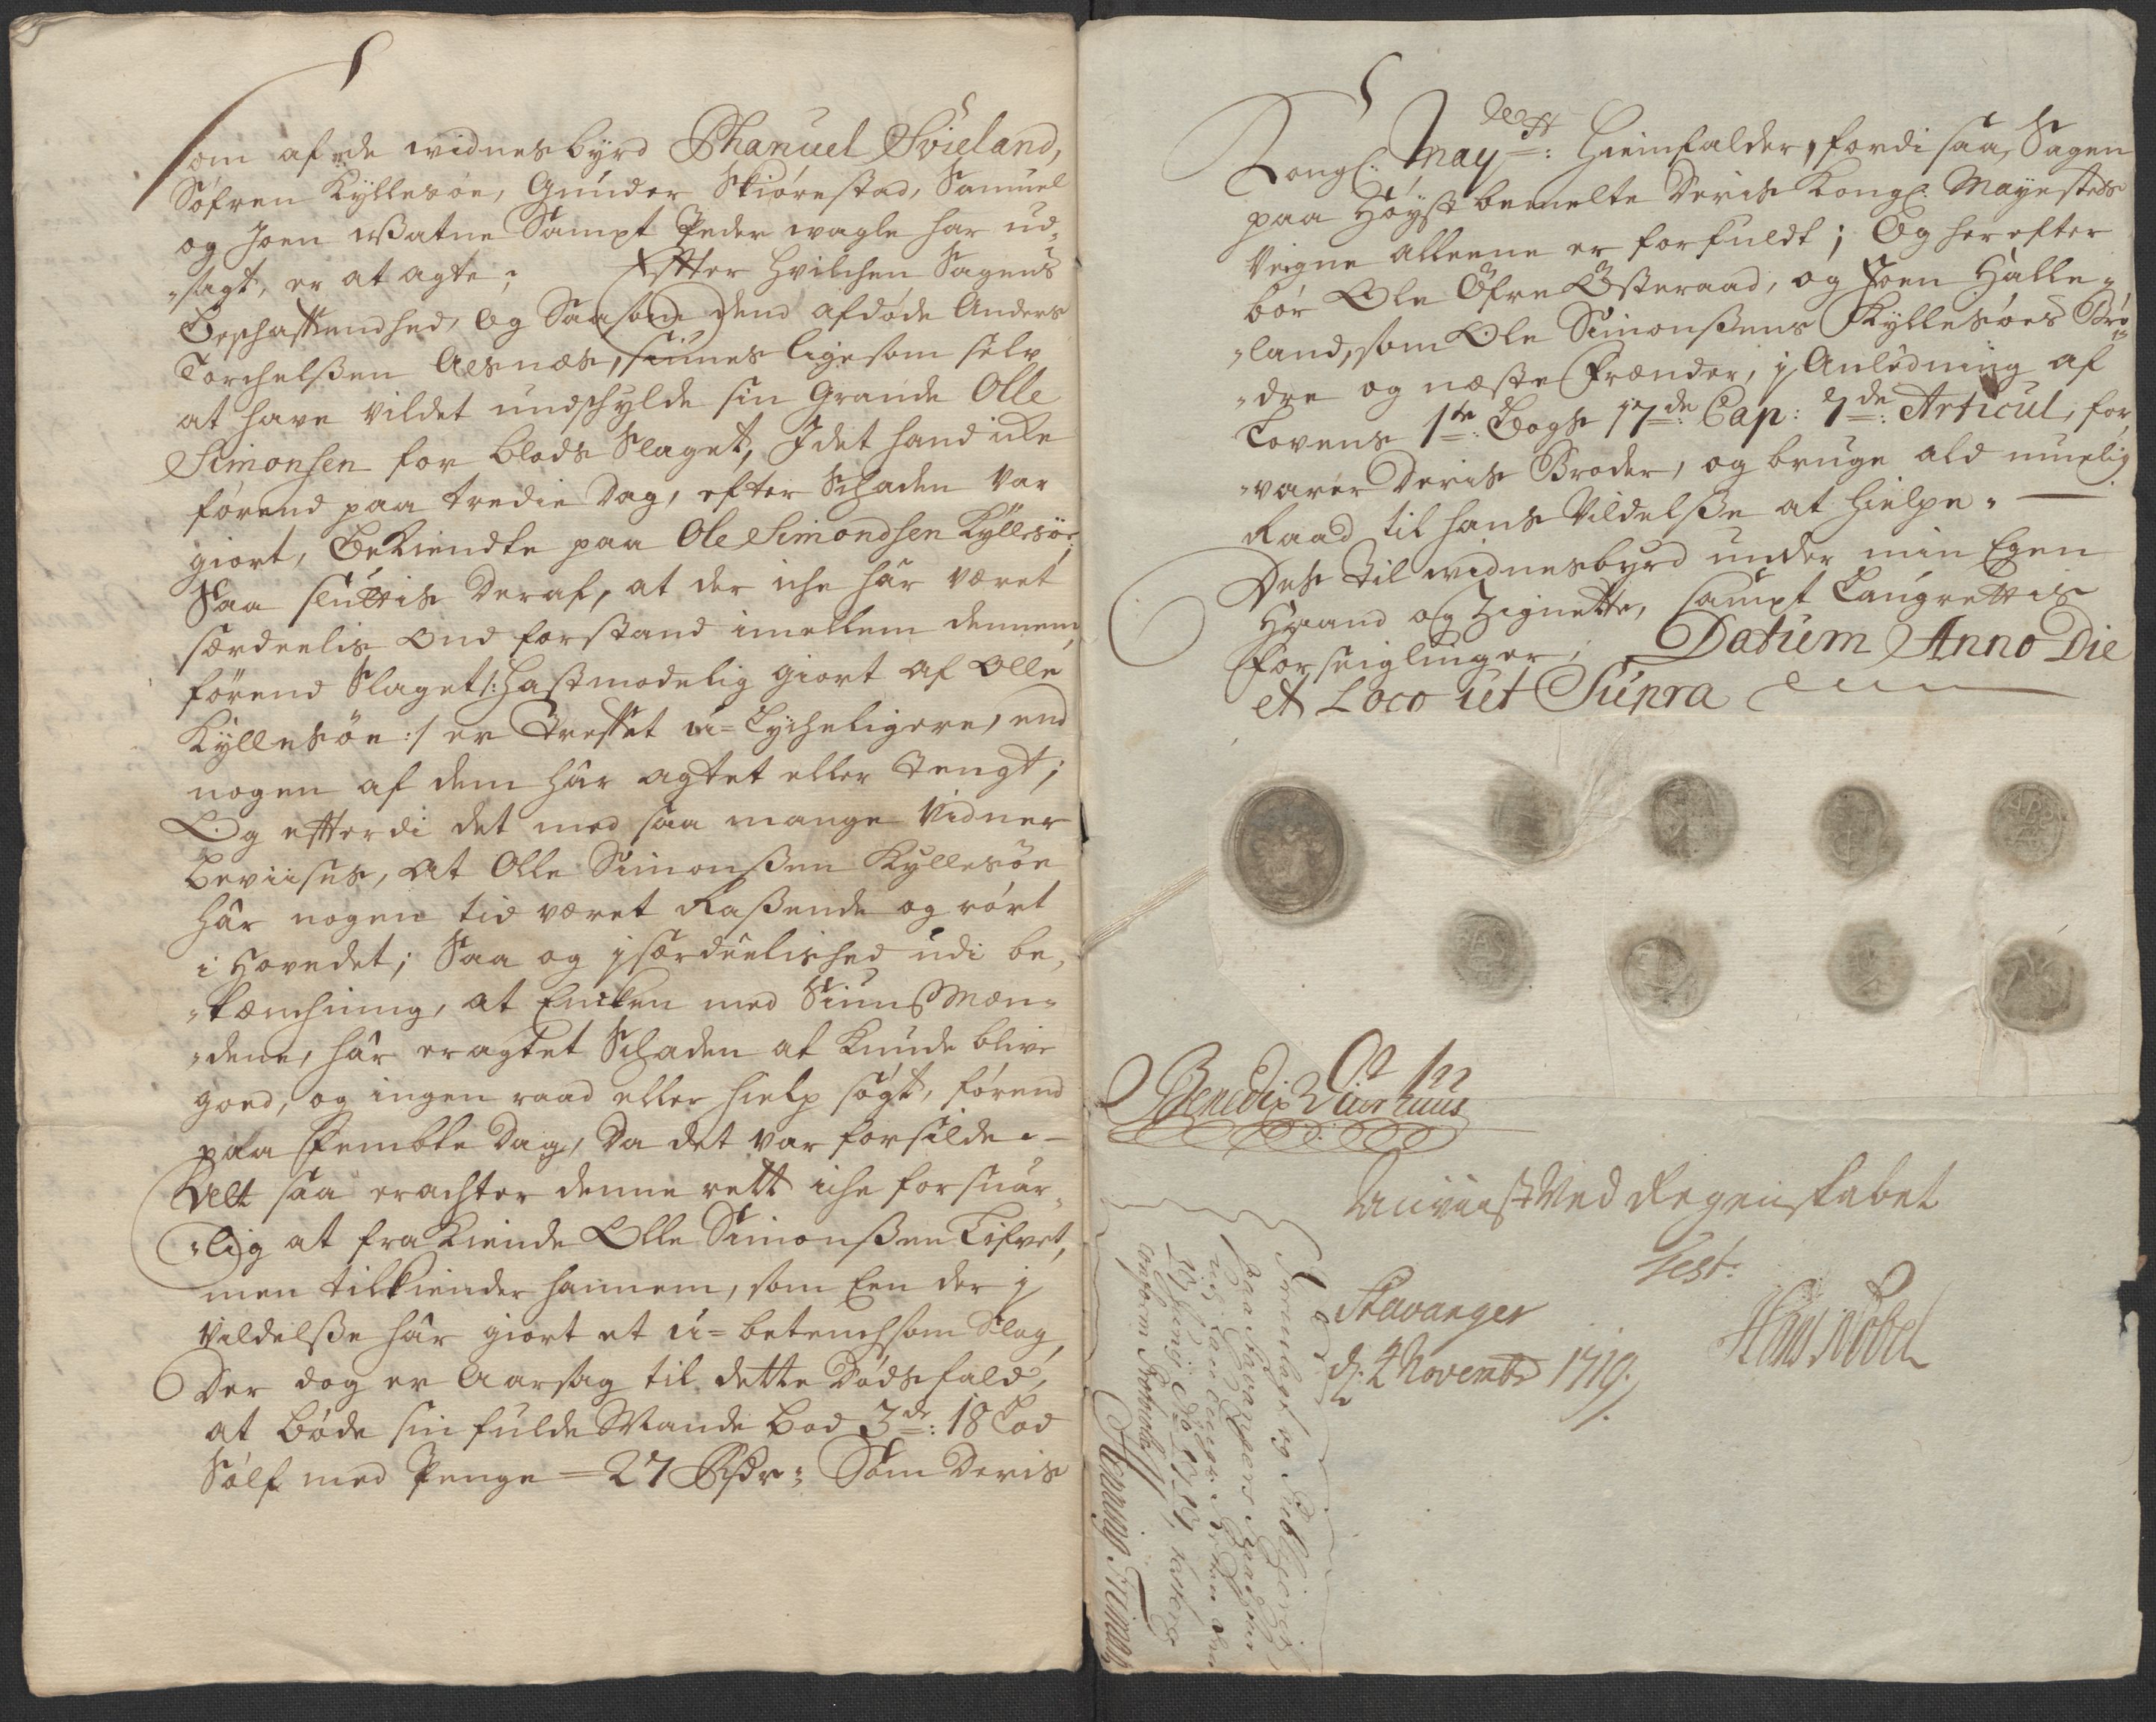 Som af de widnesbyrd Phanuel Svieland,
Söfren Kyllesöe, Gunder Skiörestad, Samuel
og Joen Watne Sampt Peder wagle har ud-
-sagt, er at agte; Efter hvilchen Sagens
Beschaffendhed, og Saasom dend afdöde Anders
Torchelßen Aesnæs, siunes lige som selv
at have vildet undschylde sin Grande Olle
Simonsen for blods Slaget, I det hand icke
förend paa tredie Dag, efter Schaden var
giort, Bekiendte paa Ole Simondsen Kyllesöe;
Saa sluttis deraf, at der iche hâr været
særdeelis ond forstand imellem dennem,
förend Slaget /: hastmodelig giort af Olle
Kyllesöe :/ er treffet u-Lycheligere, end
nogen af dem hâr agtet eller tengt;
Og efterdi det med saa mange Vidner
beviises, at Olle Simonßen Kyllesöe
hâr nogen tid været Raßende og rört
i Hovedet; Saa og j særdeelished udi be-
-tænchning, at Encken med Siuns Mæn-
-dene, hâr eragtet Schaden at kunde blive
goed, og ingen raad eller hielp sögt, förend
paa Fembte Dag, da det var forsilde.
Allt saa erachter denne rett iche forsuar-
-lig at frakiende Olle Simonßen Lifvet,
men tilkiender hannem, som Een der j
vildelße hâr giort et u-betenchsom Slag,
Der dog er Aarsag til dette Dödsfald,
at böde sin fulde Mande bod 3de: 18 Lod
Sölf med Penge = 27 Rdr; Som Deris
Kongl: Mayts: Hiemfalder, fordi saa Sagen
paa Höyst bemelte Deris Kongl: Mayestets
Veigne alleene er forfuldt; Og her efter
bör Ole Öfre Østeraad, og Joen Halle-
-land, som Ole Simonßens Kyllesöes Brö-
-dre og næste Frænder, j Anledning af
Lovens 1te: Bogs 17de: Cap: 7de: Articul, for-
-varer deris Broder, og bruge ald muelig
Raad til hans Vildelße at hielpe.
Des til widnesbyrd under min Egen
Haand og Zignette, sampt Laugrettis
Forseiglinger; Datum Anno Die
et Loco ut Supra
Benedix Diurhuus
Anviist Ved Regenskabet
Test:
Stavanger
d: 4 Novembr 1719.
Hans Nobel
Fremlagt og Publiceret
paa Stavangers
1719,
conform Protocoll
Henning